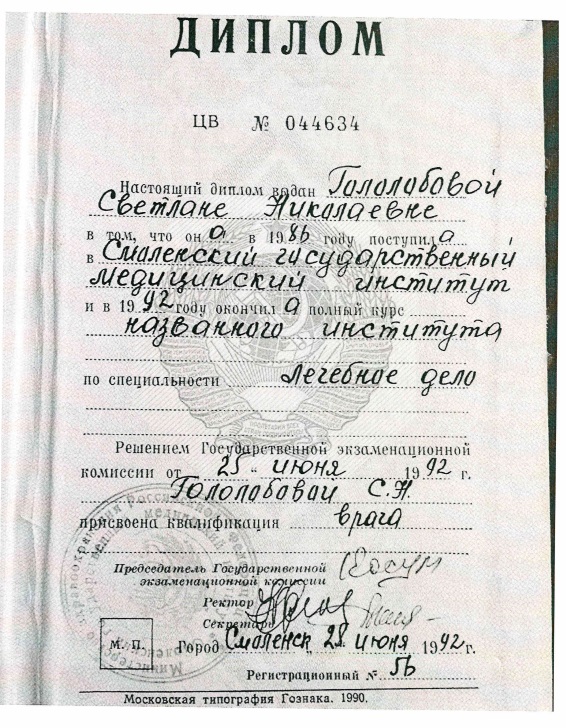 ДИПЛОМ
ЦВ № 044634
Настоящий диплом выдан Гололобовой
Светлане Николаевне
в том, что она в 1986 году поступила
в Смоленский государственный
медицинский институт
и в 1992 году окончила полный курс
названного института
по специальности Лечебное дело
Решением Государственной экзаменационной
комиссии от 25 " июня 1992 г.
Гололобовой С.Н.
присвоена квалификация врача
Председатель Государственной
экзаменационной комиссии
Ректор
Секретарь
М. П.
Город Смоленск, 28 июня 1992 г.
Регистрационный № 56
Московская типография Гознака. 1990.